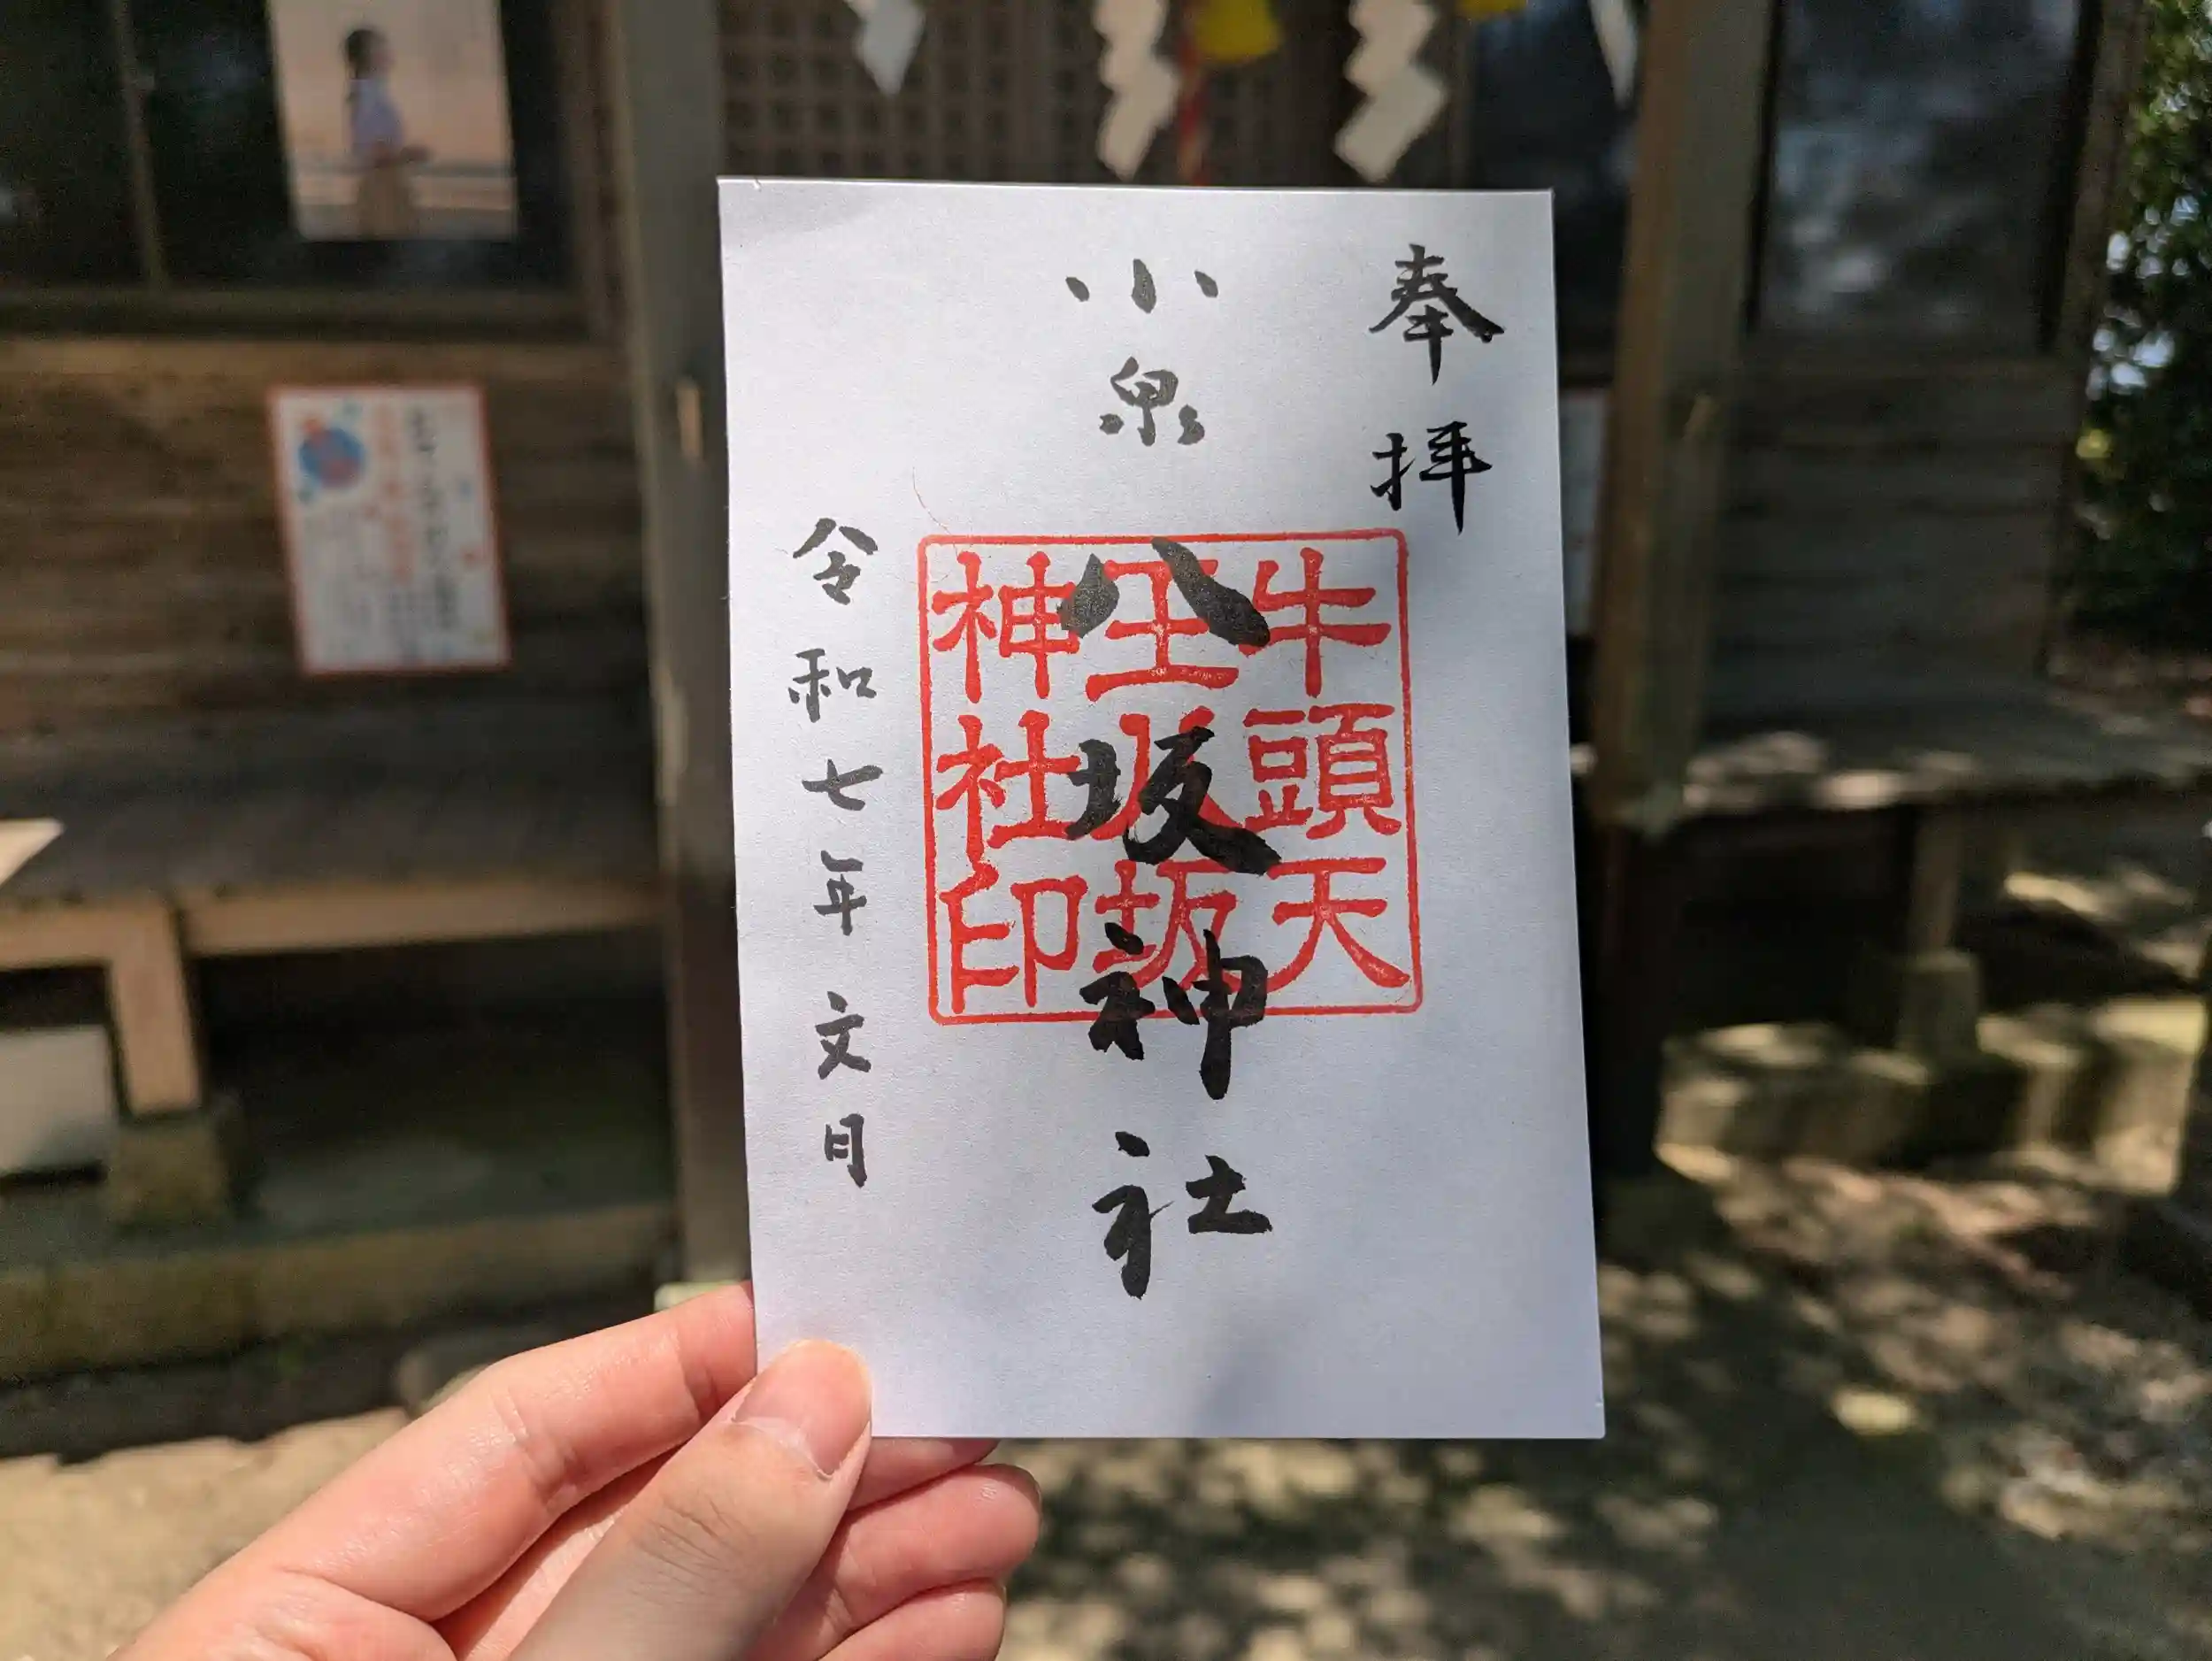 奉拝
小泉
八坂神社
牛頭天
王八坂
神社印
令和七年文月